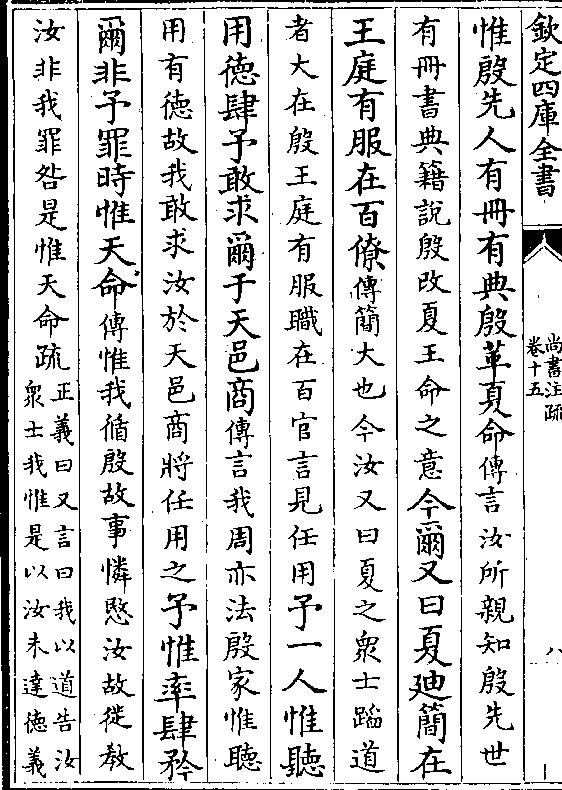 欽定四庫全書
尚書注疏
卷十五
八
惟殷先人有冊有典殷革夏命傳言汝所親知殷先世
有冊書典籍說殷改夏王命之意今爾又曰夏廸簡在
王庭有服在百僚傳簡大也今汝又曰夏之衆士蹈道
者大在殷王庭有服職在百官言見任用予一人惟聽
用德肆予敢求爾于天邑商傳言我周亦法殷家惟聽
用有德故我敢求汝於天邑商將任用之予惟率肆矜
爾非予罪時惟天命傳惟我循殷故事憐愍汝故徙教
汝非我罪咎是惟天命疏
正義曰又言曰我以道告汝
衆士我惟是以汝未達德義